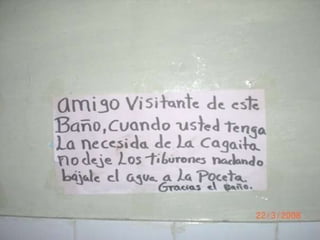 amigo Visitante de este
Baño, cuando usted tenga
La necesida de La Cagaita
no deje Los tiburones nadando
bájale el agua a La Poceta.
Gracias el baño.
22/3/2008